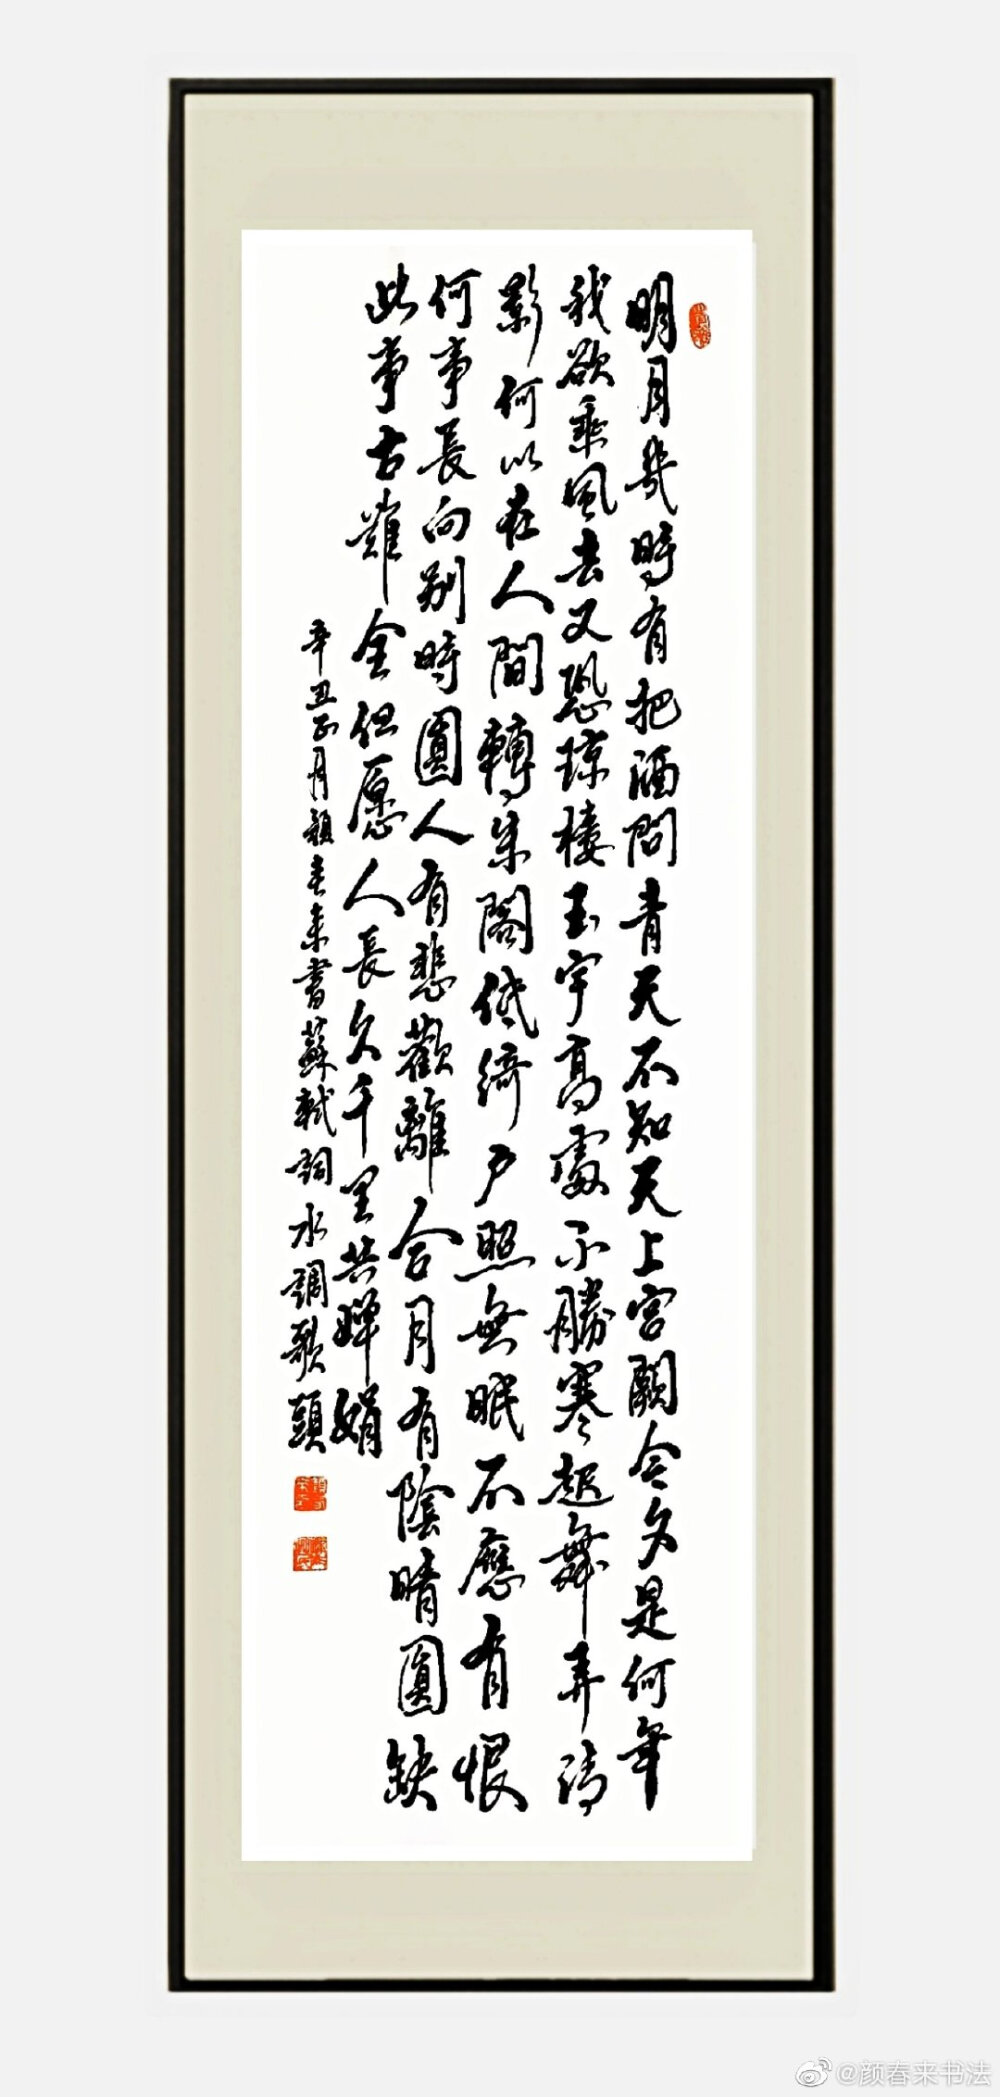 明月幾時有把酒問青天不知天上宮闕今夕是何年
我欲乘風去又恐瓊樓玉宇高處不勝寒起舞弄清
影何以在人間轉朱閣低綺戶照無眠不應有恨
何事長向别時圓人有悲歡離合月有陰晴圓缺
此事古難全但愿人長久千里共嬋娟
辛丑正月顏春來書蘇軾詞水調歌頭
@颜春来书法